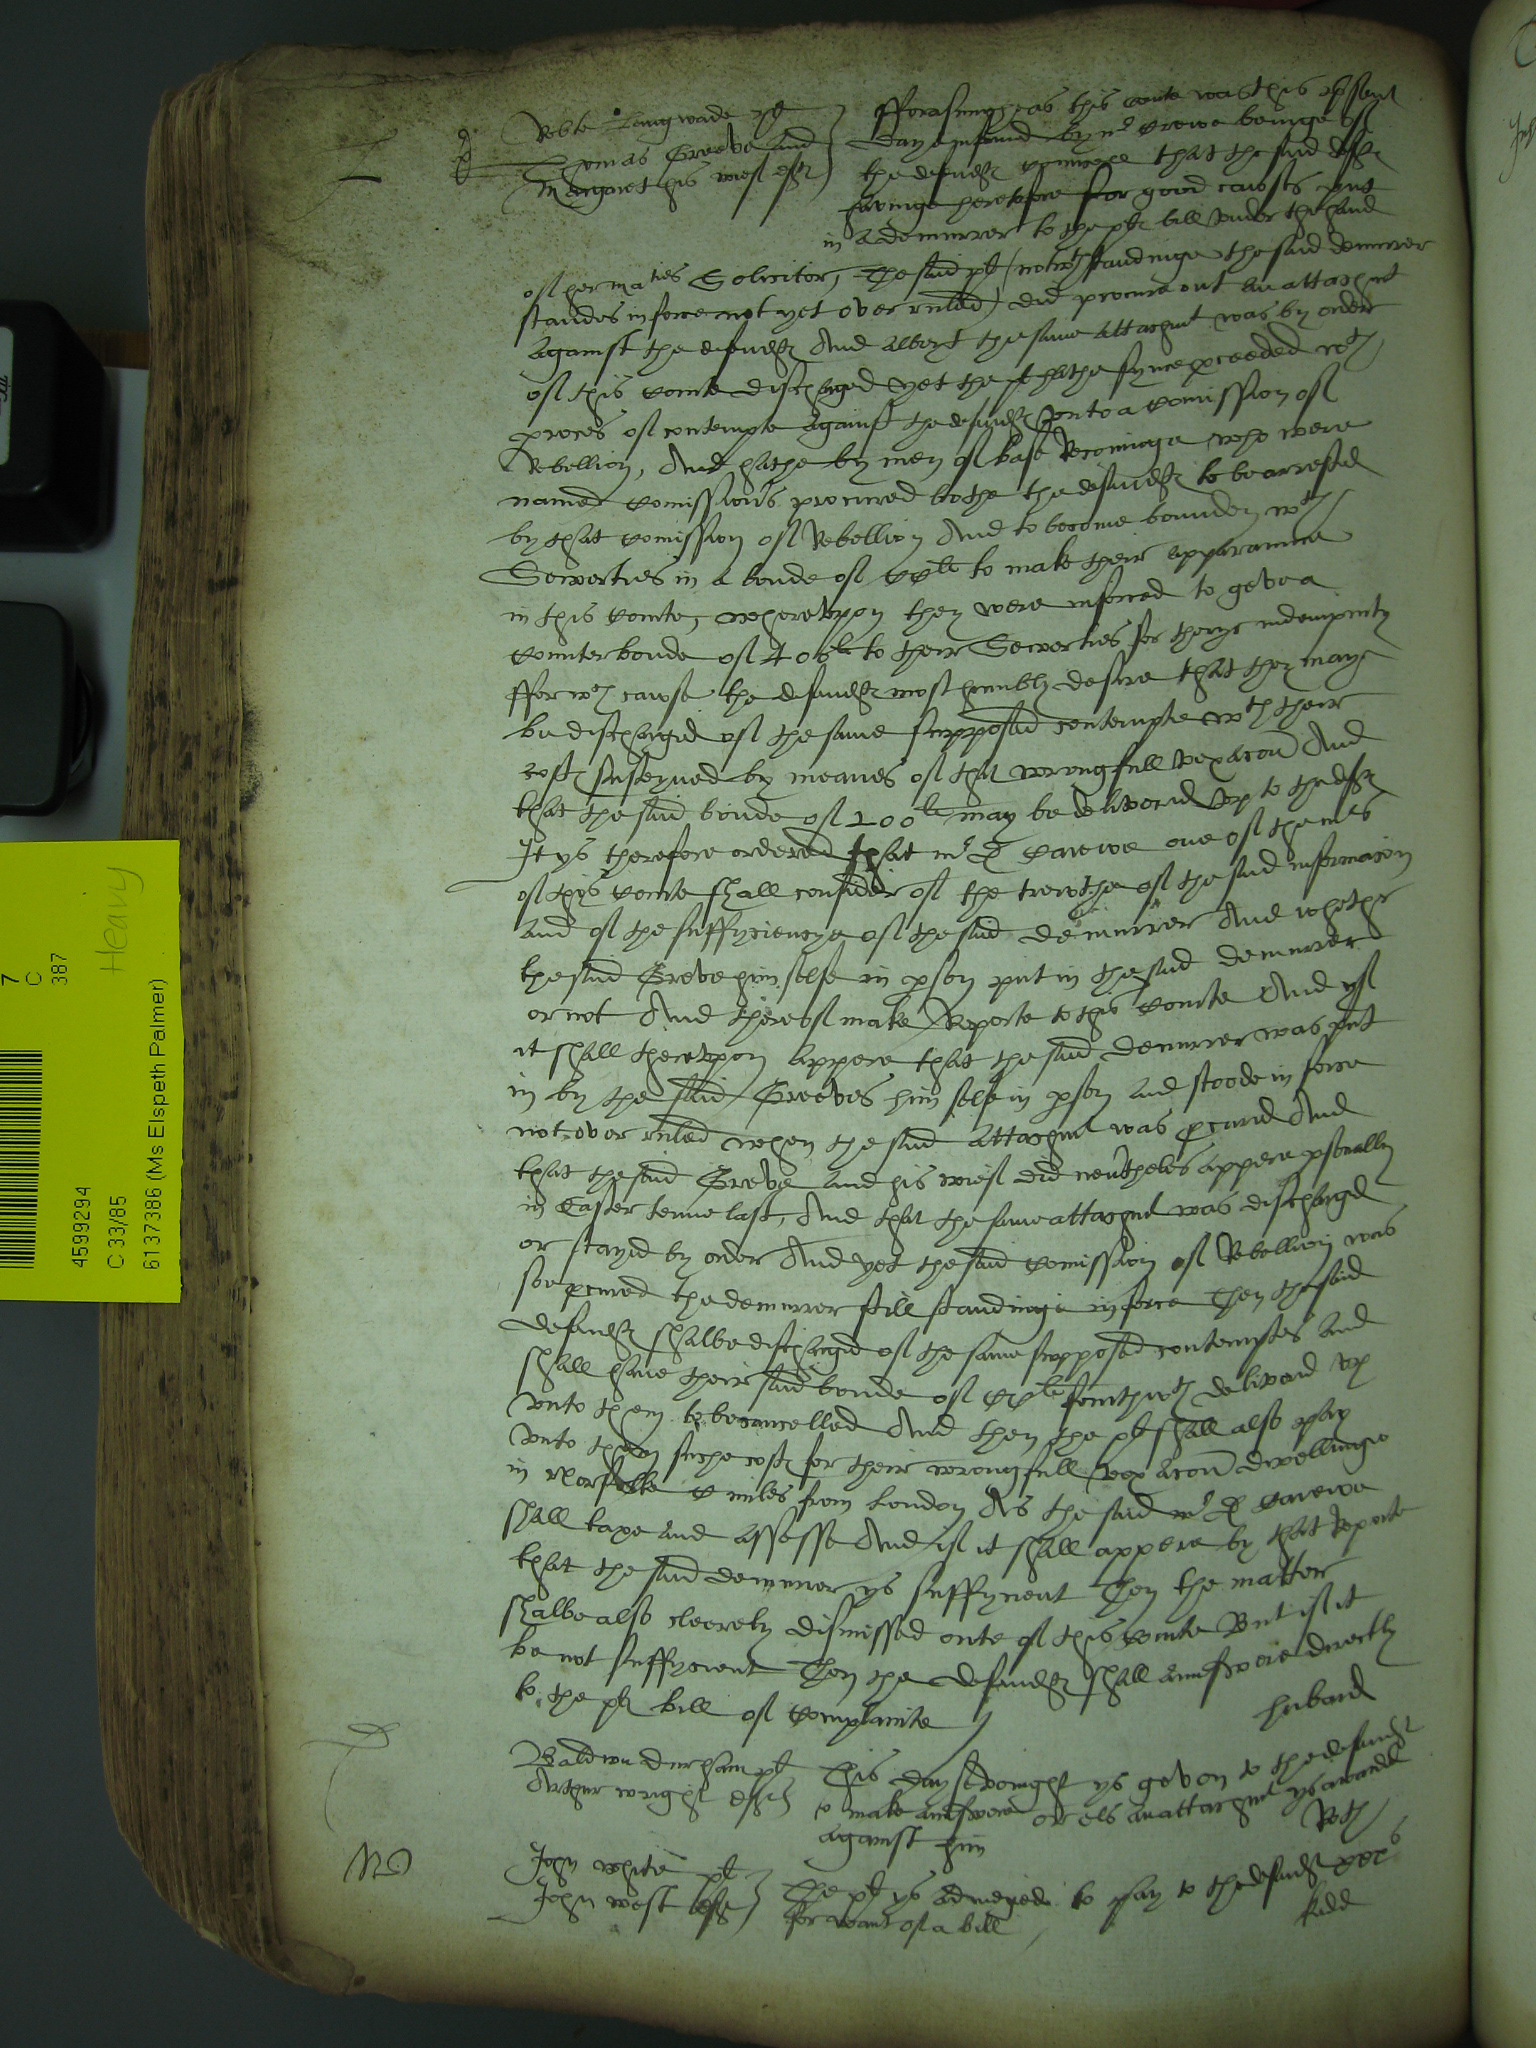 Robte Langwade plt
Thomas Greeve and
Margaret his wief deftes
fforasmuch as this courte was this present
daye informed by mr Crewe beinge of
the defendtes councell that the said deftes
havinge heretofore for good causes put
in a demurrer to the plts bill under the hand
of her maties Solicitor, The said plt (notwthstandinge the said demurrer
standes in force not yet over ruled) did procure out an attachmt
against the defendtes And albeyt the same attachmt was by order
of this courte discharged yet the plt hathe synce proceeded wth
proces of contempte against the defendtes unto a comission of
Rebellion, And hathe by men of base
named comissioners procured bothe the defendtes to be arrested
by that comission of Rebellion And to become bounden wth
Sewerties in a bonde of CCli to make their apparaunce
in this courte, whereuppon they were inforced to geve a
counterbonde of 400li to their Sewerties for theyr indempnity
ffor wch cause the defendtes most humbly desire that they maye
be discharged of the same supposed contempte wth their
costes susteyned by meanes of that wrongfull vexacon And
that the said bonde of 200li may be delivered up to the deftes
It ys therefore ordered that mr D Carewe one of the mrs
of this courte shall consider of the trewthe of the said informacion
and of the suffyciencye of the said demurrer And whether
the said Greve him selfe in pson put in the said demurrer
or not And thereof make Reporte to this courte And yf
it shall thereuppon appere that the said demurrer was put
in by the said Greeves him selfe in pson and stoode in force
not over ruled when the said attachmt was procured And
that the said Greve and his wief did nevertheles appere psonally
in Easter terme last, And that the same attachmt was discharged
or stayed by order And yet the said comission of Rebellion was
soe procured the demurrer still standinge in force Then the said
defendtes shalbe discharged of the same supposed contemptes and
shall have their said bonde of CCli forthwth delivered up
unto them to be cancelled And then the plt shall also pay
unto them suche costes for their wrongfull vexacon dwellinge
in Norfolke C miles from London As the said mr D Carewe
shall taxe and assesse And if it shall appere by that Reporte
that the said demurrer ys suffycient Then the matter
shalbe also cleerely dismissed oute of this courte But if it
be not suffycient Then the defendtes shall aunswere directly
to the plts bill of complainte
hubard
Baldwin Durham plt
Arthur wright deft
This day sevenight ys geven to the defendt
to make aunswere or els an attachmt ys awarded
against him
John white plt
John west deft
The plt ys adiudged to pay to the defendt
for want of a bill
7
C
387
Heavy
4599294
C 33/85
6137386 (Ms Elspeth Palmer)